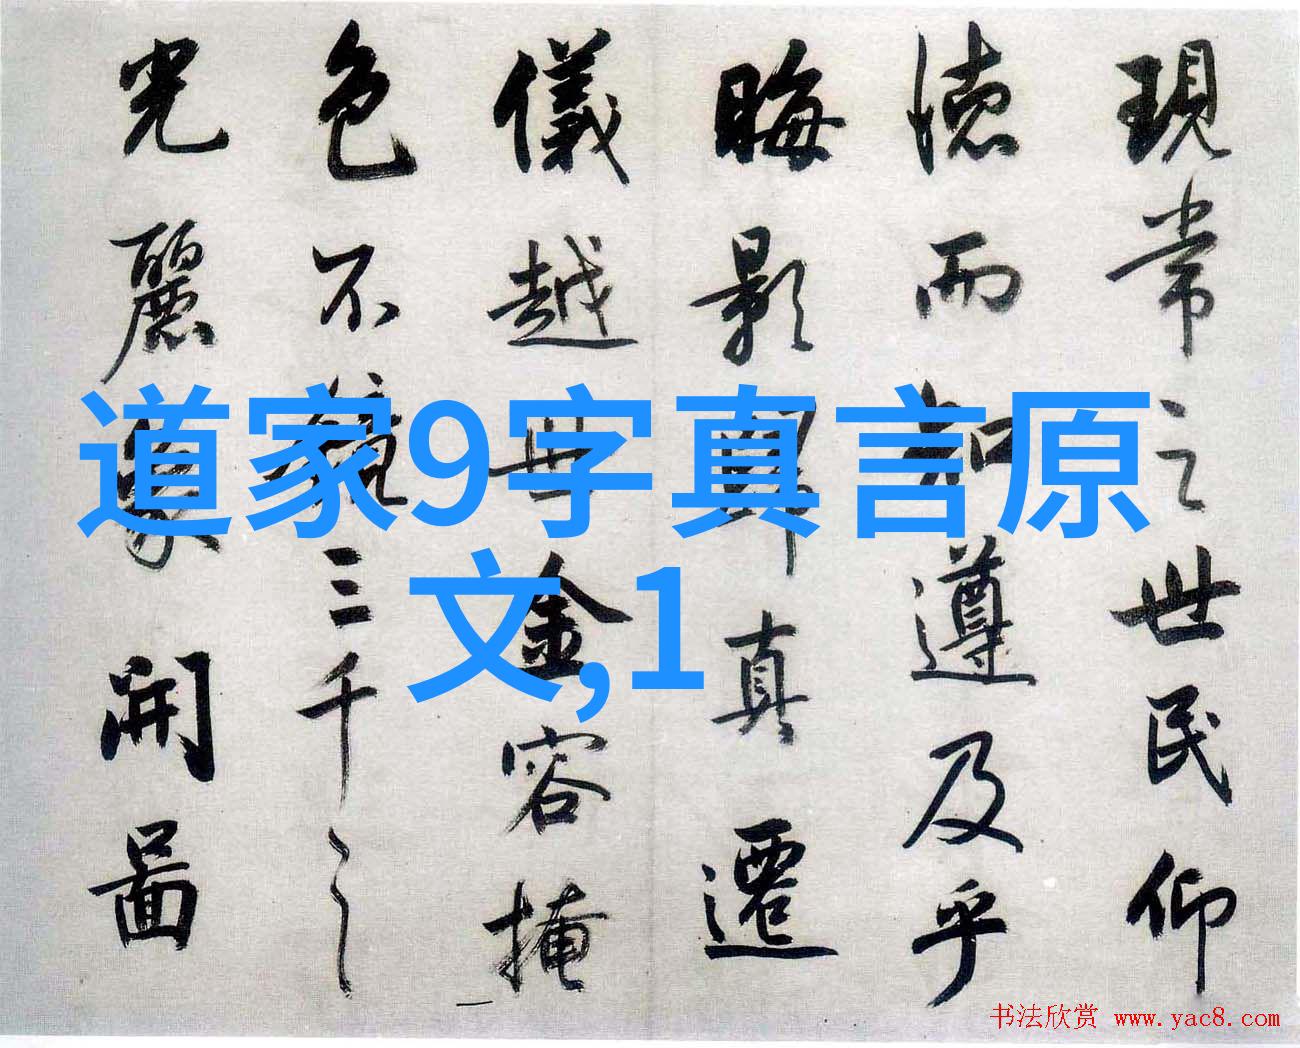 現常之世民仰
徳而知遵及乎
晦影歸真遷
儀越世金容掩
色不鏡三千之
光麗象開圖
道家9字真言原
文,1
书法欣赏 www.yac8.com